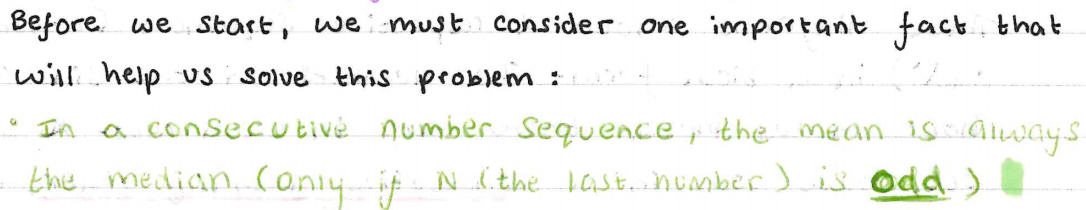 Before we start, we must consider one important fact that
will help us solve this problem :
• In a consecutive number sequence, the mean is always
the median (only if N (the last number) is odd)